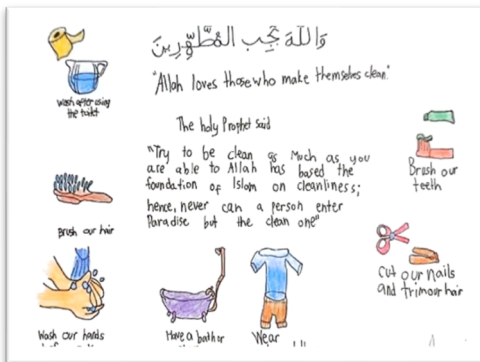 وَاللَّهُ يُحِبُّ الْمُطَّهِّرِينَ
"Allah loves those who make themselves clean."
The holy Prophet said
"Try to be clean as Much as you
are able to Allah has based the
foundation of Islam on cleanliness;
hence, never can a person enter
Paradise but the clean one"
Wash after using
the toilet
Brush our
teeth
Brush our hair
Cut our nails
and trim our hair
Wash our hands
Have a bath or
Wear